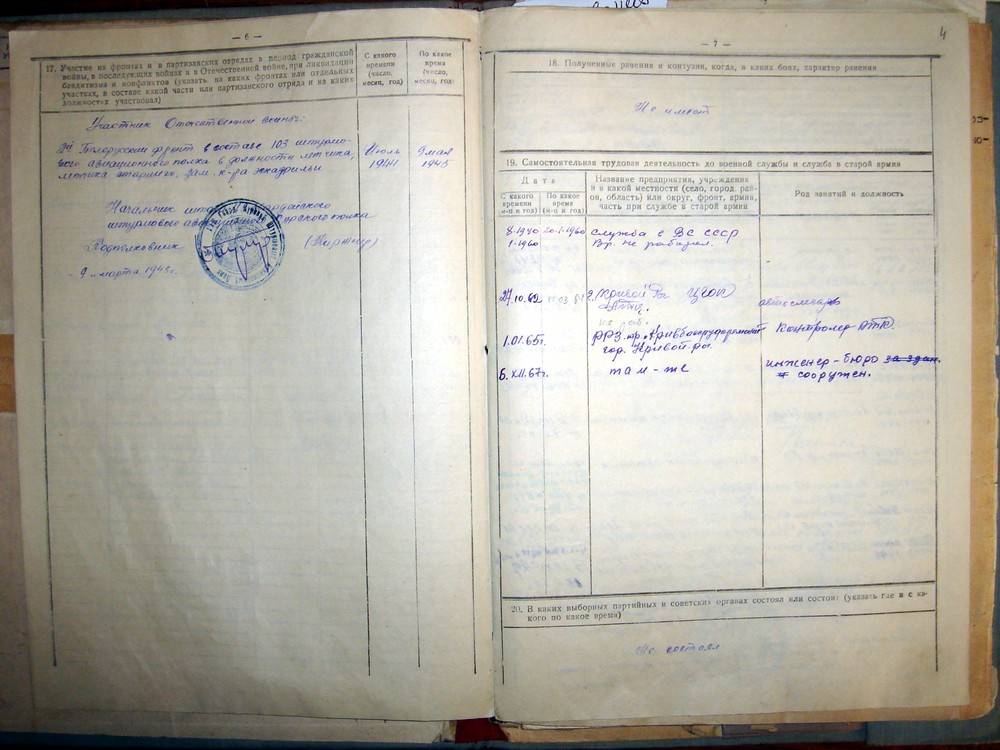 — 6 —
17. Участие на фронтах и в партизанских отрядах в период гражданской
войны, в последующих войнах и в Отечественной войне, при ликвидации
бандитизма и конфликтов (указать на каких фронтах или отдельных
участках, в составе какой части или партизанского отряда и на каких
должностях участвовал)
С какого
времени
(число,
месяц, год)
По какое
время
(число,
месяц, год)
Участник Отечественной войны:
Белорусский фронт в составе 103 штурмо-
вого авиационного полка в должности летчика,
летчика старшего, зам. к-ра эскадрильи
Июль
1941
9 мая
1945
Начальник
штурмового полка
Подполковник
9 марта
— 7 —
4
18. Полученные ранения и контузии, когда, в каких боях, характер ранения
Не имеет
19. Самостоятельная трудовая деятельность до военной службы и служба в старой армии
Дата
С какого
времени
(м-ц и год)
По какое
время
(м-ц и год)
Название предприятия, учреждения
и в какой местности (село, город, рай-
он, область) или округ, фронт, армия,
часть при службе в старой армии
Род занятий и должность
8-1940 20-1-1960 служба в ВС СССР
1-1960 Вр. не работал.
27.10.62 Кривой Рог ЦГОК
автослесарь
1.01.65г. РРЗ
гор. Кривой-Рог
Контролер ОТК.
5.XII.67г. там-же
инженер-бюро
сооружен.
20. В каких выборных партийных и советских органах состоял или состоит (указать где и с ка-
кого по какое время)
Не состоял